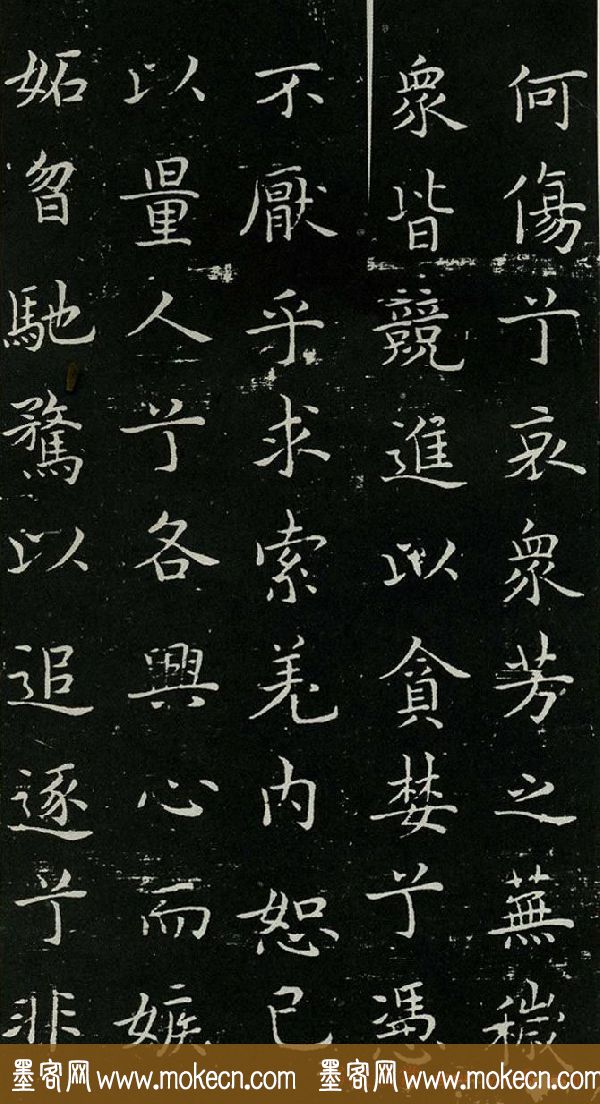 何傷兮哀衆芳之蕪穢
衆皆競進以貪婪兮憑
不厭乎求索羌内恕己
以量人兮各興心而嫉
妬曶馳騖以追逐兮非
墨客网 www.mokecn.com 墨客网 www.mokecn.com